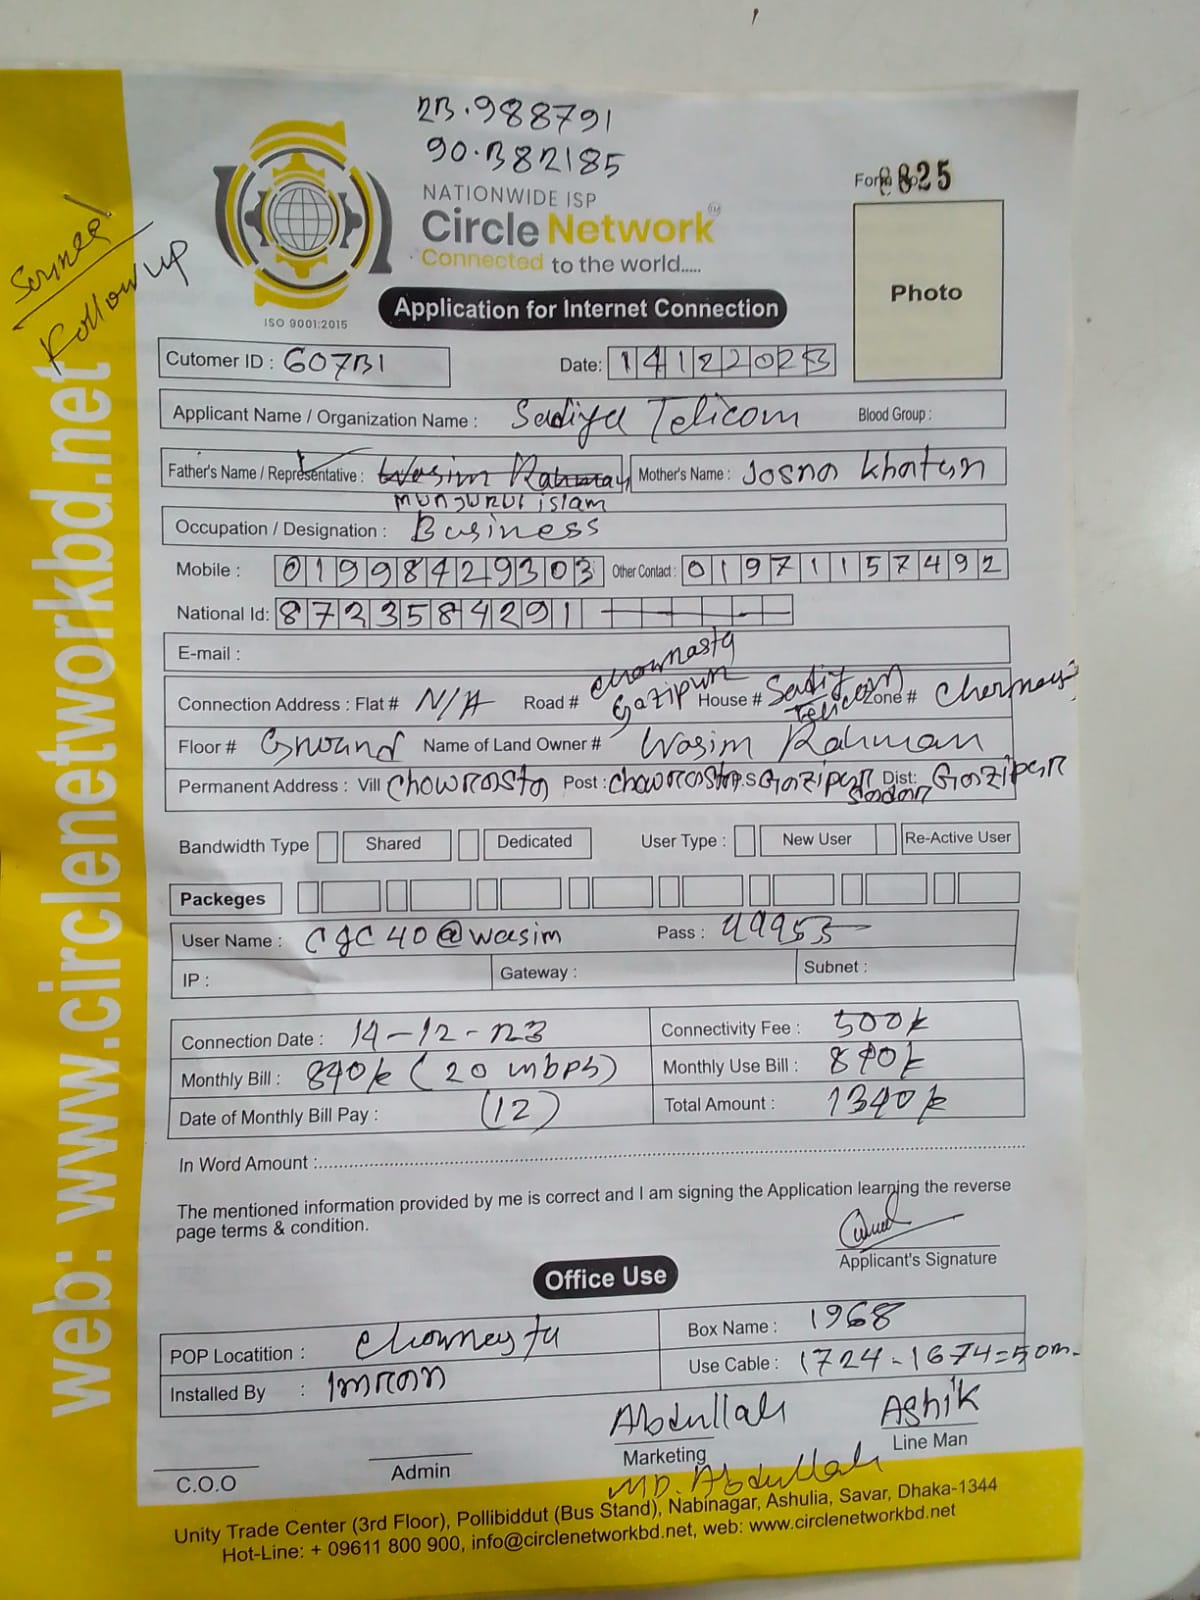 23.988791
90.382185
NATIONWIDE ISP
Circle Network
Connected to the world.....
ISO 9001:2015
Follow up
Form 8825
Photo
Application for Internet Connection
Cutomer ID : 60731
Date: 14122023
Applicant Name / Organization Name : Sadiya Telicom Blood Group :
Father's Name / Representative : Wasim Rahman Mother's Name : Josna Khatun
munjurul islam
Occupation / Designation : Business
Mobile : 01998429303 Other Contact : 01971157492
National Id: 8723584291
E-mail :
Connection Address : Flat # N/A Road # Chowrasta Gazipur House # Sadiya Telicom Zone #
Floor # Ground Name of Land Owner # Wasim Rahman
Permanent Address : Vill Chowrasta Post : Chowrasta P.S Gazipur Sadar Dist: Gazipur
Bandwidth Type Shared Dedicated User Type : New User Re-Active User
Packeges
User Name : CGC40@wasim Pass : 49953
IP : Gateway : Subnet :
Connection Date : 14-12-23 Connectivity Fee : 500k
Monthly Bill : 840k (20 mbps) Monthly Use Bill : 840k
Date of Monthly Bill Pay : (12) Total Amount : 1340k
In Word Amount :
The mentioned information provided by me is correct and I am signing the Application learning the reverse
page terms & condition.
Applicant's Signature
Office Use
POP Locatition : Chowrasta Box Name : 1968
Installed By : Imran Use Cable : 1724-1674=50m.
Abdullah Ashik
C.O.O Admin Marketing Line Man
MD. Abdullah
Unity Trade Center (3rd Floor), Pollibiddut (Bus Stand), Nabinagar, Ashulia, Savar, Dhaka-1344
Hot-Line: + 09611 800 900, info@circlenetworkbd.net, web: www.circlenetworkbd.net
web: www.circlenetworkbd.net